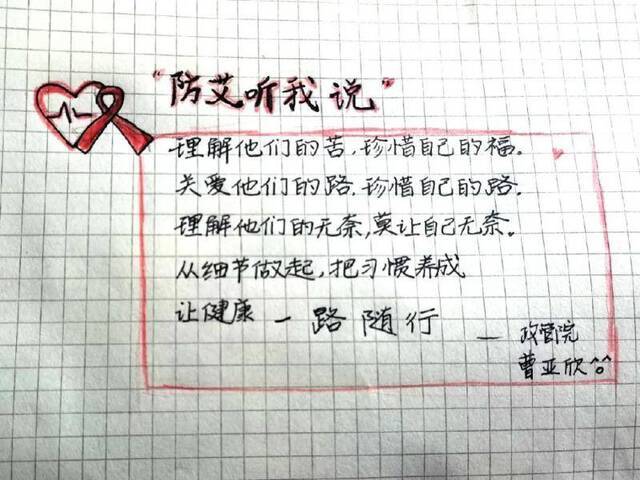 “防艾听我说”
理解他们的苦,珍惜自己的福。
关爱他们的路,珍惜自己的路。
理解他们的无奈,莫让自己无奈。
从细节做起,把习惯养成
让健康一路随行
—政管院
曹亚欣^o^